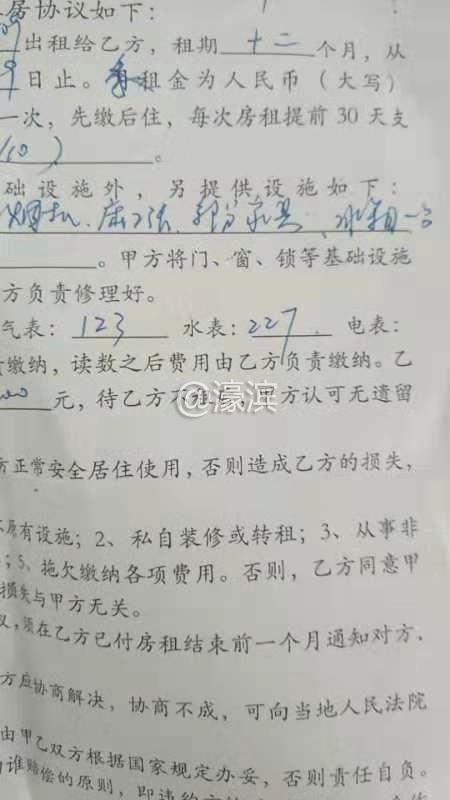 居协议如下：
出租给乙方，租期 十二 个月，从
日止。租金为人民币（大写）
一次，先缴后住，每次房租提前 30 天支
10）。
础设施外，另提供设施如下：
冰箱一台
。甲方将门、窗、锁等基础设施
方负责修理好。
气表：123 水表：227. 电表：
缴纳，读数之后费用由乙方负责缴纳。乙
元，待乙方不住后，甲方认可无遗留
@濠滨
方正常安全居住使用，否则造成乙方的损失，
原有设施；2、私自装修或转租；3、从事非
；5、拖欠缴纳各项费用。否则，乙方同意甲
损失与甲方无关。
义，须在乙方已付房租结束前一个月通知对方，
方应协商解决，协商不成，可向当地人民法院
由甲乙双方根据国家规定办妥，否则责任自负。
谁赔偿的原则，即违约